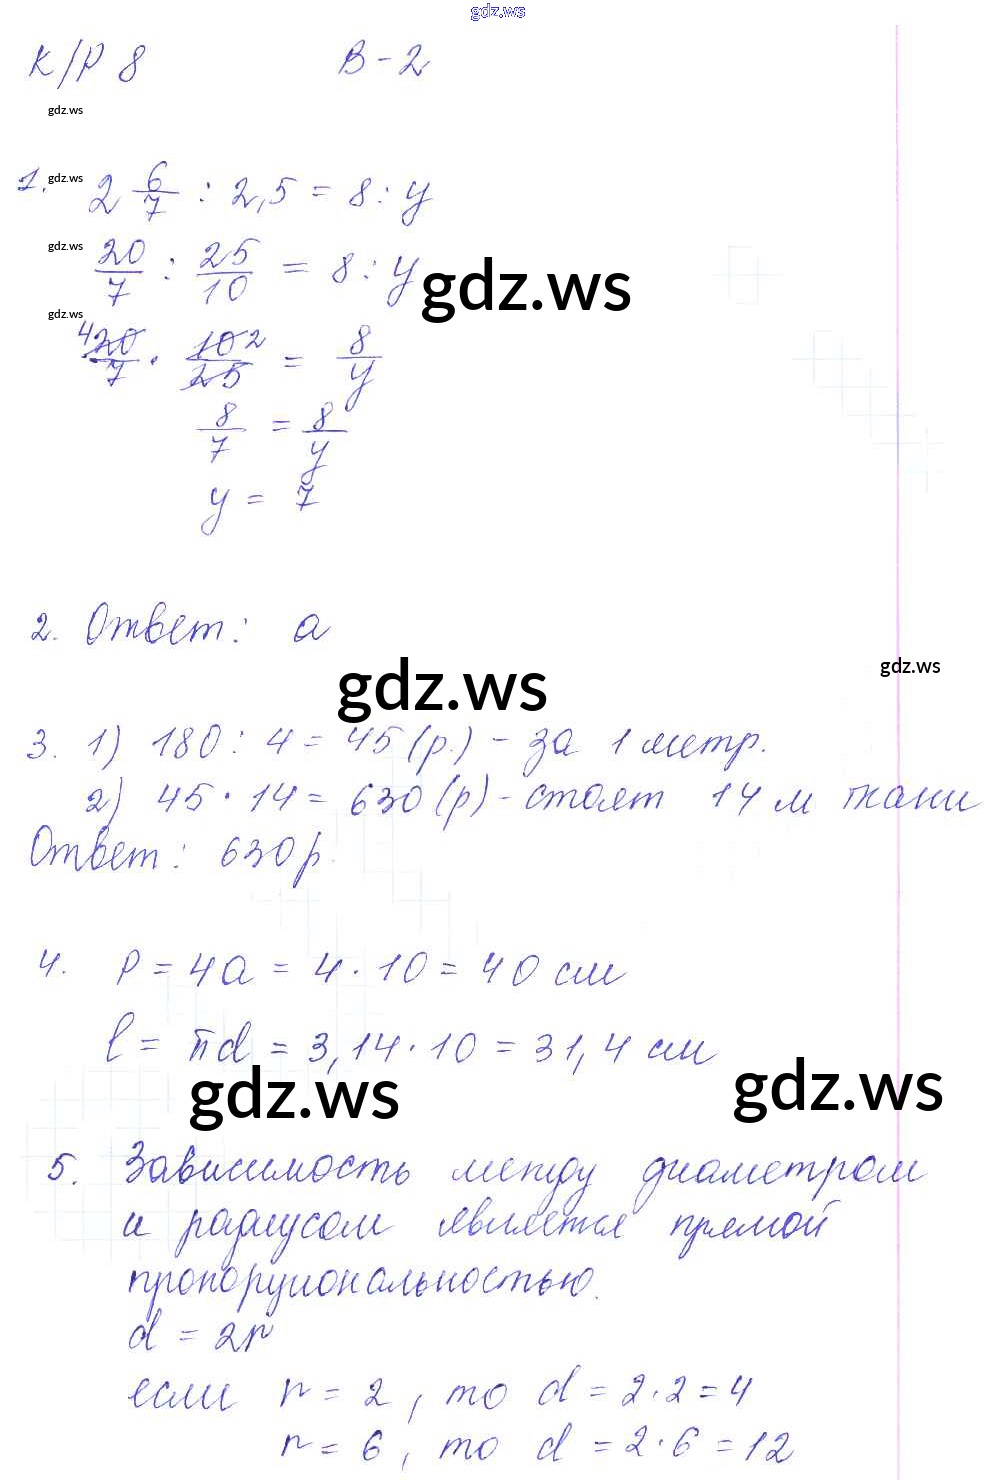 gdz.ws
К/Р 8 В-2
gdz.ws
1. gdz.ws 2 6/7 : 2,5 = 8 : y
gdz.ws 20/7 : 25/10 = 8 : y
gdz.ws
gdz.ws
4 20/7 · 10 2/25 = 8/y
8/7 = 8/y
y = 7
2. Ответ: а
gdz.ws
gdz.ws
3. 1) 180 : 4 = 45 (р.) - за 1 метр.
2) 45 · 14 = 630 (р) - стоят 14 м ткани
Ответ: 630 р.
4. P = 4a = 4 · 10 = 40 см
l = πd = 3,14 · 10 = 31,4 см
gdz.ws
gdz.ws
5. Зависимость между диаметром
и радиусом является прямой
пропорциональностью.
d = 2r
если r = 2, то d = 2·2 = 4
r = 6, то d = 2·6 = 12